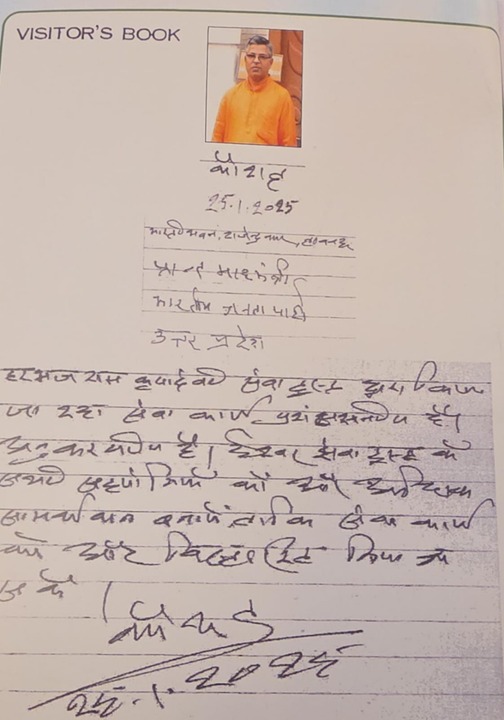 VISITOR'S BOOK
25.1.2025
भारतीभवन, राजेन्द्र नगर, लखनऊ
प्रान्त
भारतीय जनता पार्टी
उत्तर प्रदेश
हरभज राम कृपा देवी सेवा ट्रस्ट द्वारा किया
जा रहा सेवा कार्य प्रशंसनीय है।
अनुकरणीय है। ईश्वर सेवा ट्रस्ट के
सभी सहयोगियों को और अधिक
सामर्थ्यवान बनायें ताकि सेवा कार्य
को और विस्तारित किया जा
सके।
25.1.2025